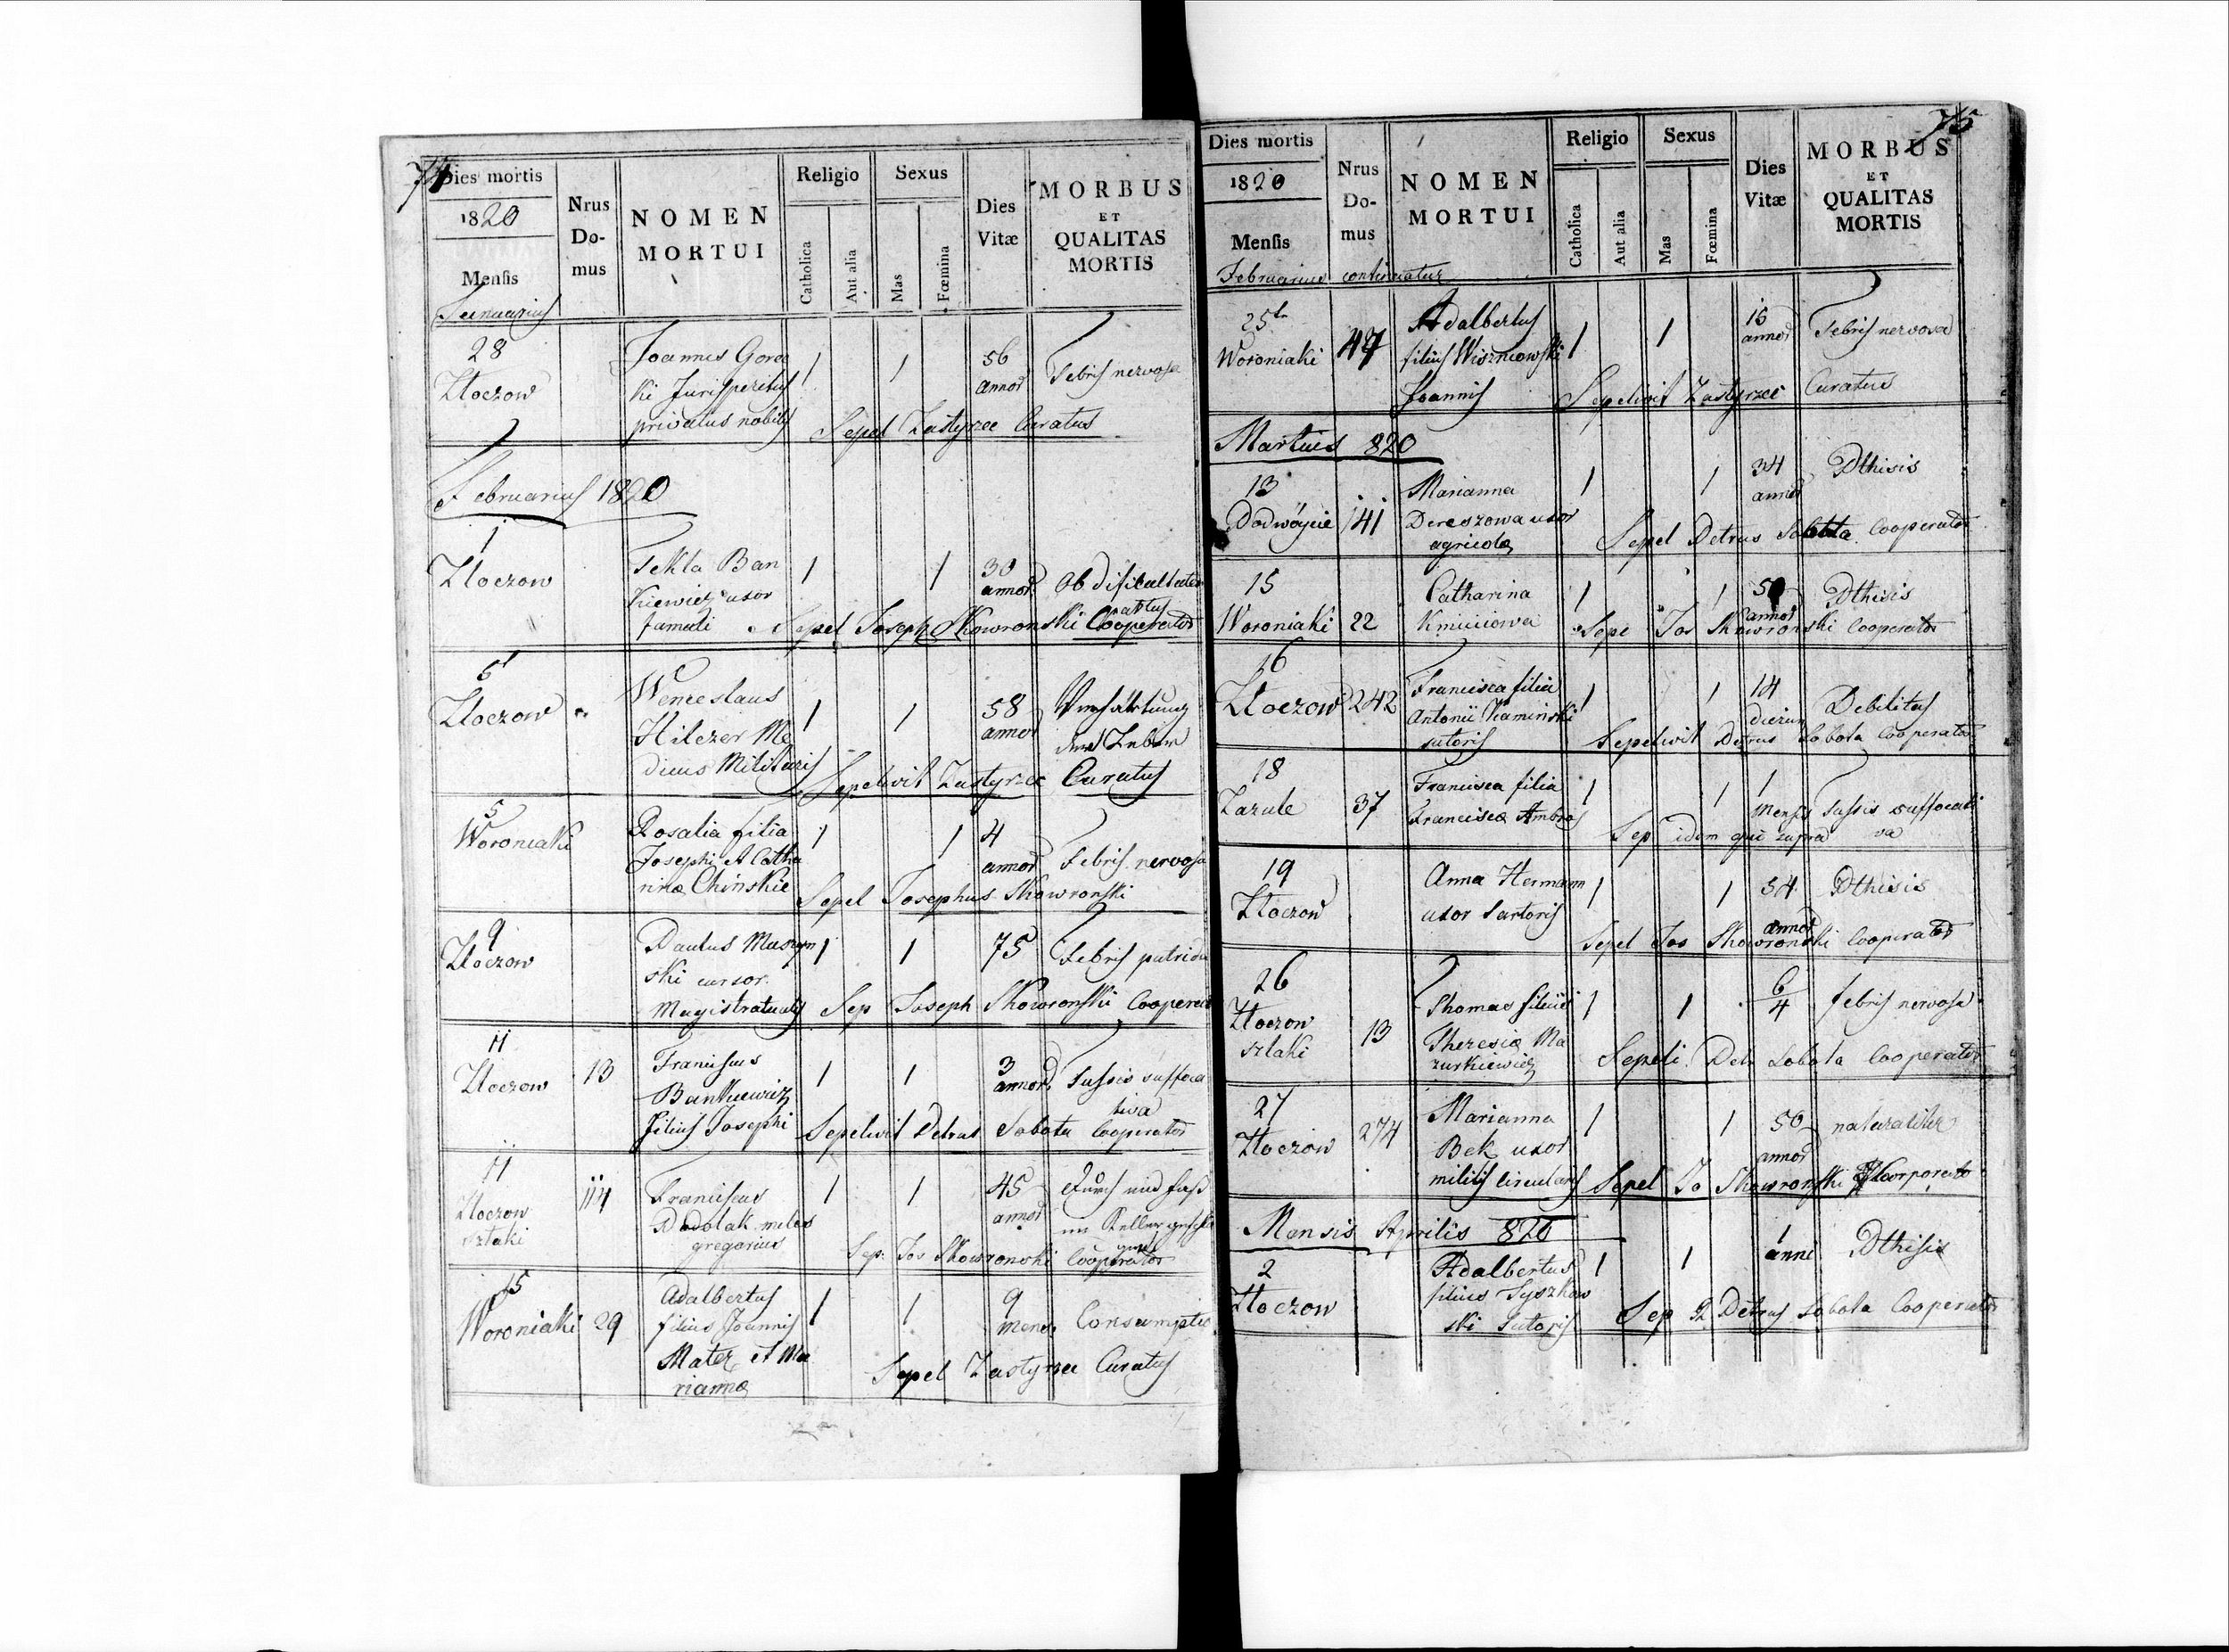 74
Dies mortis
1820
Mensis
Nrus Do-mus
NOMEN MORTUI
Religio
Catholica
Aut alia
Sexus
Mas
Fœmina
Dies Vitæ
MORBUS ET QUALITAS MORTIS
Januarius
28 Joannes Gorec 1 1 56
Zloczow ki Jurisperitus annor Febris nervosa
privatus nobilis Sepel Zastyrzec Curatus
Februarius 1820
1
Zloczow Tekla Ban 1 1 30
kiewicz uxor annor. Ob dificultatem
famuli Sepel Joseph Skowronski Cooperator partus
5
Zloczow Wenceslaus 1 1 58 Verhärtung
Hilczer Me annor der Leber
dicus Militaris Sepelivit Zastyrzec Curatus
5
Woroniaki Rosalia filia 1 1 4
Josephi et Catha annor Febris nervosa
rinæ Chinskie Sepel Josephus Skowronski
9
Zloczow Paulus 1 1 75 Febris putrida
ski cursor
Magistratualis Sep Joseph Skowronski Cooperator
11
Zloczow 13 Franciscus 1 1 3
Bankiewicz annor. Tussis suffoca
tiva
Filius Josephi Sepelivit Petrus Sobota Cooperator
11
Zloczow 114 Franciscus 1 1 45 Durch
sztaki Dodolak miles annor im Keller
gregarius Sep: Jos Skowronski Cooperator
15
Woroniaki 29 Adalbertus 1 1 9
filius Joannis Mens. Consumptio
Mater et Ma
riannæ Sepel Zastyrzec Curatus
75
Dies mortis
1820
Mensis
Nrus Do-mus
NOMEN MORTUI
Religio
Catholica
Aut alia
Sexus
Mas
Fœmina
Dies Vitæ
MORBUS ET QUALITAS MORTIS
Februarius continuatur
25ta Adalbertus 1 1 15
Woroniaki 47 filius Wiszniowski annor Febris nervosa
Joannis Sepelivit Zastyrzec Curatus
Martius 820
13 Marianna 1 1 34 Pthisis
Podwoycie 141 Dereszowa uxor annor
agricolæ Sepel Petrus Sobota Cooperator
15 Catharina 1 1 50 Pthisis
Woroniaki 22 Kmiciowa annor
Sepe Jos Skowronski Cooperator
16
Zloczow 242 Francisca filia 1 1 14 Debilitas
Antonii Kaminski dierum
sutoris Sepelivit Petrus Sobota Cooperator
18
Zazule 37 Francisca filia 1 1 1
Franciscæ Ambros Mensis Tussis suffocati
va
Sep idem qui supra
19
Zloczow Anna Hermann 1 1 54 Pthisis
uxor Sartoris annor
Sepel Jos Skowronski Cooperator
26
Zloczow 13 Thomas filius 1 1 6/4 febris nervosa
sztaki Theresiæ Ma
zurkiewicz Sepeli. Petr Sobota Cooperator
27
Zloczow 274 Marianna 1 1 50 naturaliter
Bek uxor annor
militis circularis Sepel Jo Skowronski
Mensis Aprilis 820
2 Adalbertus 1 1 1 Pthisis
anni
Zloczow filius Syszkow
ski Sutoris Sep Petrus Sobota Cooperator